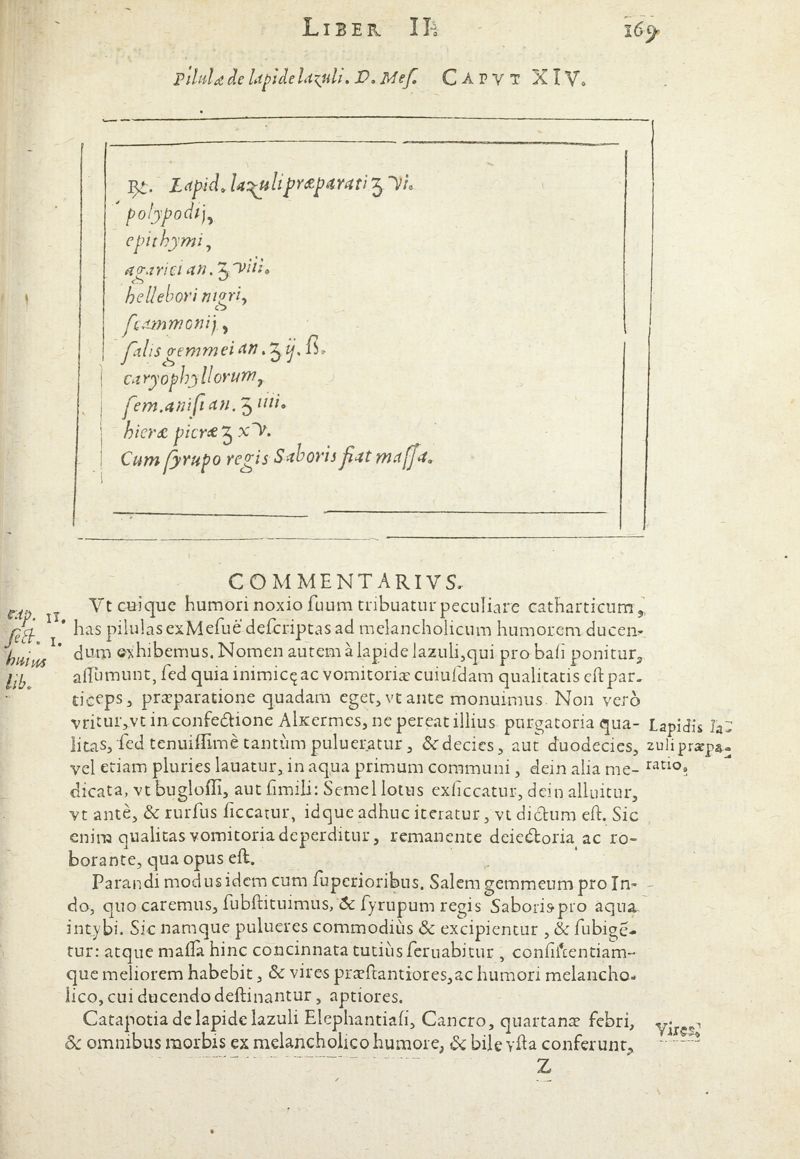 LIBER II.
169
Pilulæ de lapide lazuli. D. Mes. CAPVT XIV.
℞. Lapid. lazuli præparati ʒ vi.
polypodij,
epithymi,
agarici an. ʒ viii.
hellebori nigri,
ſcammonij,
ſalis gemmei an. ʒ ij. ß.
caryophyllorum,
ſem. aniſi an. ʒ iiii.
hieræ picræ ʒ xv.
Cum ſyrupo regis Saboris fiat maſſa.
COMMENTARIVS.
Vt cuique humori noxio ſuum tribuatur peculiare catharticum,
cap. 11.
ſect. 1.
huius
lib.
has pilulas ex Meſuë deſcriptas ad melancholicum humorem ducen-
dum exhibemus. Nomen autem à lapide lazuli, qui pro baſi ponitur,
aſſumunt, ſed quia inimicę ac vomitoriæ cuiuſdam qualitatis eſt par-
ticeps, præparatione quadam eget, vt ante monuimus. Non verò
vritur, vt in confectione Alkermes, ne pereat illius purgatoria qua-
litas, ſed tenuiſſimè tantùm pulueratur, & decies, aut duodecies,
Lapidis la-
zuli præpa-
ratio.
vel etiam pluries lauatur, in aqua primum communi, dein alia me-
dicata, vt bugloſſi, aut ſimili: Semel lotus exſiccatur, dein alluitur,
vt antè, & rurſus ſiccatur, idque adhuc iteratur, vt dictum eſt. Sic
enim qualitas vomitoria deperditur, remanente deiectoria ac ro-
borante, qua opus eſt.
Parandi modus idem cum ſuperioribus. Salem gemmeum pro In-
do, quo caremus, ſubſtituimus, & ſyrupum regis Saboris pro aqua
intybi. Sic namque pulueres commodiùs & excipientur, & ſubigē-
tur: atque maſſa hinc concinnata tutiùs ſeruabitur, conſiſtentiam-
que meliorem habebit, & vires præſtantiores, ac humori melancho-
lico, cui ducendo deſtinantur, aptiores.
Catapotia de lapide lazuli Elephantiaſi, Cancro, quartanæ febri,
Vires.
& omnibus morbis ex melancholico humore, & bile vſta conferunt,
Z